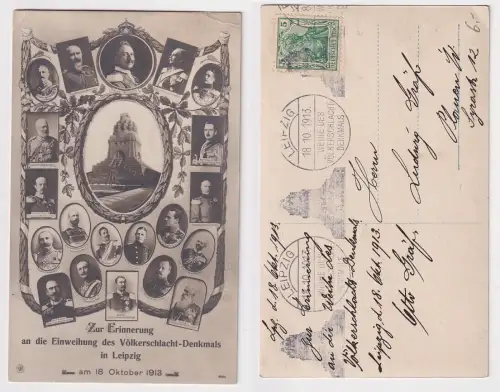 Zur Erinnerung
an die Einweihung des Völkerschlacht-Denkmals
in Leipzig
am 18 Oktober 1913
5
LEIPZIG
18.10.1913.
WEIHE DES
VÖLKERSCHLACHT
DENKMALS
LEIPZIG
Herrn
Ludwig Gräf
Plauen i/V.
12
Lpz. d. 18. Okt. 1913.
Zur Erinnerung
an die Weihe des
Völkerschlacht-Denkmals
Leipzig, d. 18. Okt. 1913.
Otto Gräf.